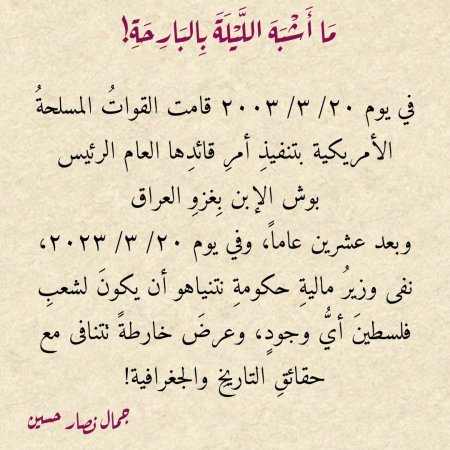 مَا أَشْبَهَ اللَّيْلَةَ بِالبَارِحَةِ!
في يوم ٢٠/ ٣/ ٢٠٠٣ قامت القواتُ المسلحةُ
الأمريكية بتنفيذِ أمرِ قائدِها العام الرئيس
بوش الإبن بِغزوِ العراق
وبعد عشرين عاماً، وفي يوم ٢٠/ ٣/ ٢٠٢٣،
نفى وزيرُ ماليةِ حكومةِ نتنياهو أن يكونَ لشعبِ
فلسطينَ أيُّ وجودٍ، وعرضَ خارطةً تتنافى مع
حقائقِ التاريخ والجغرافية!
جمال نصار حسين